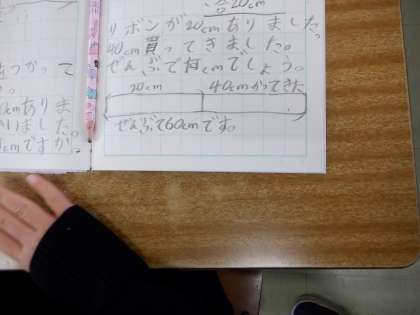 合20cm
リボンが20cmありました。
40cm買ってきました。
ぜんぶで何cmでしょう。
20cm 40cmかってきた
ぜんぶで60cmです。
つかって
cmありま
いました。
cmですか。